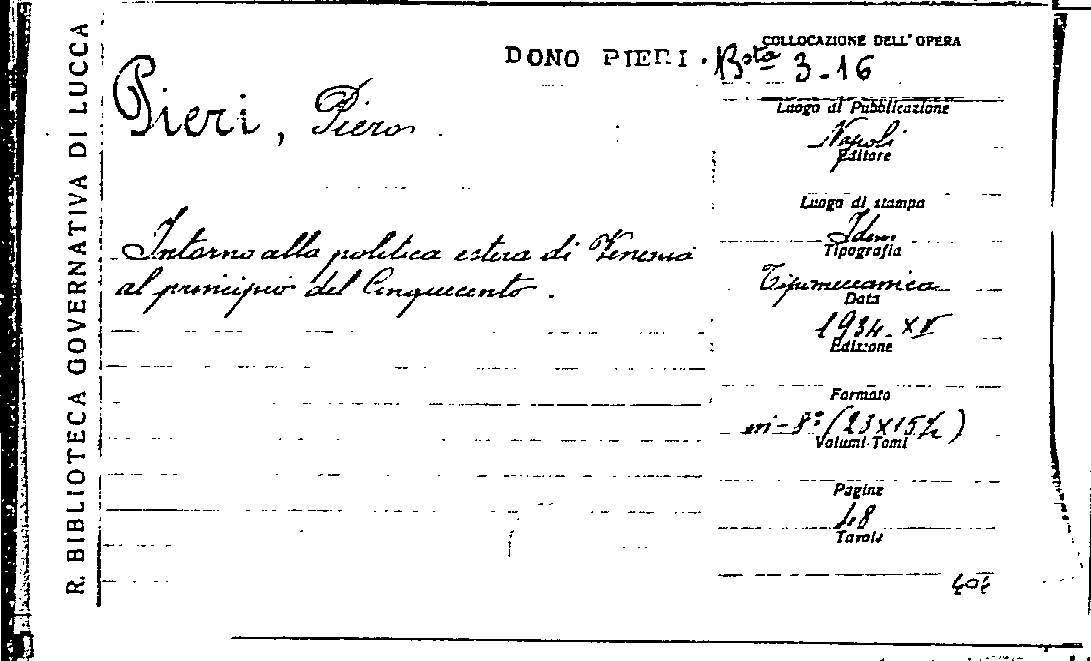 R. BIBLIOTECA GOVERNATIVA DI LUCCA
DONO PIERI.
COLLOCAZIONE DELL'OPERA
Bsta 3-16
Pieri, Piero
Intorno alla politica estera di Venezia
al principio del Cinquecento.
Luogo di Pubblicazione
Napoli
Editore
Luogo di stampa
Idem
Tipografia
Tipomeccanica
Data
1934-XII
Edizione
Formato
in-8° (23x15½)
Volumi-Tomi
Pagine
48
Tavole